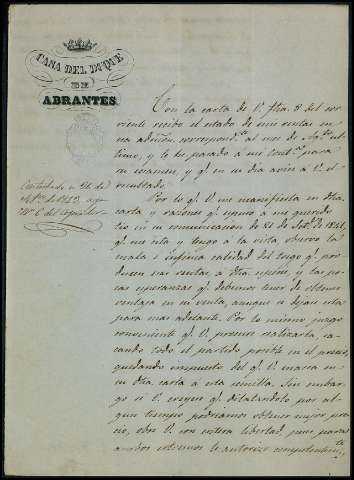 CASA DEL DUQUE
DE
ABRANTES.
Con la carta de V. fha. 8 del cor-
riente recibo el estado de mis rentas en
esa admon. correspondte. al mes de
timo, y lo he pasado a mi Contra. para
su examen, y qe. en su dia avise a V. el
resultado.
Contestada en 26 de
de 1853,
Nº 6 del copiador
Por lo qe. V. me manifiesta en dha.
carta y razones qe. espuso a mi querido
tio en su comunicacion de 21 de de 1841,
qe. me cita y tengo a la vista observo la
mala e infima calidad del trigo qe. pro-
ducen esas rentas, a dha. especie, y las po-
cas esperanzas qe. debemos tener de obtener
ventaja en su venta, aunque se dejara esta
para mas adelante. Por lo mismo juzgo
conveniente qe. V. procure realizarla, sa-
cando todo el partido posible en el precio,
quedando impuesto del qe. V. marca en
su dha. carta a esta semilla. Sin embar-
go si V. creyere qe. dilatandolo por al-
gun tiempo podriamos obtener mejor pre-
cio, obre V. con entera libertad, pues para
ambos estremos le autorizo competentemte.